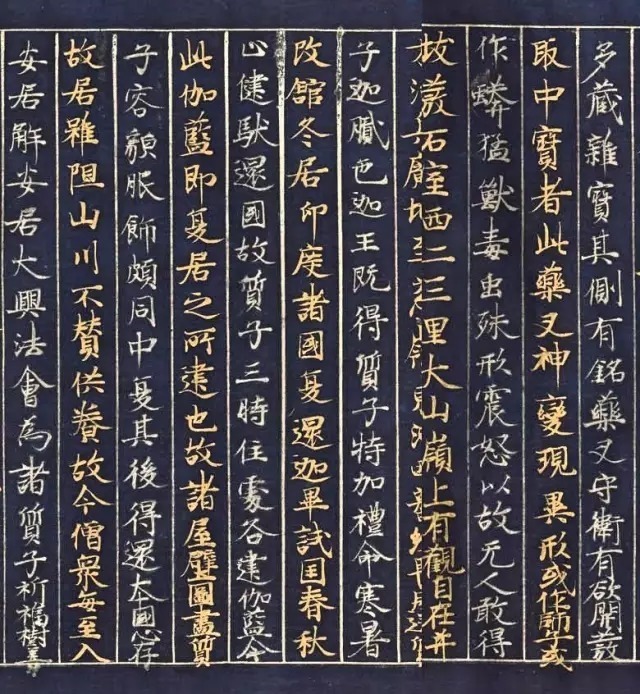 多蔵雜寶其側有銘藥叉守衛有欲開發
取中寶者此藥叉神變現異形或作師子或
作蟒猛獸毒虫殊形震怒以故无人敢得
石室西二三里大山嶺上有觀自在
子迦膩色迦王既得質子特加禮命寒暑
改館冬居印度諸國夏還迦畢試囯春秋
止健馱邏國故質子三時住處各建伽藍今
此伽藍即夏居之所建也故諸屋壁圖畫質
子容貌服飾頗同中夏其後得還本國心存
故居雖阻山川不替供養故今僧衆每至入
安居解安居大興法會為諸質子祈福樹善